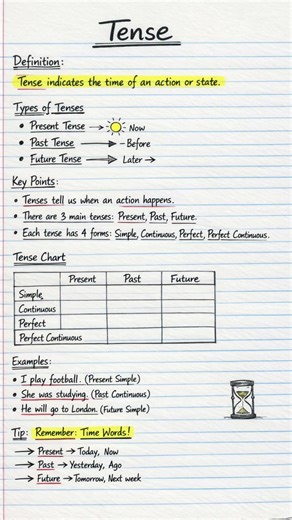 Tense
Definition:
Tense indicates the time of an action or state.
Types of Tenses
• Present Tense → Now
• Past Tense → - Before
• Future Tense → Later →
Key Points:
• Tenses tell us when an action happens.
• There are 3 main tenses: Present, Past, Future.
• Each tense has 4 forms: Simple, Continuous, Perfect, Perfect Continuous.
Tense Chart
Present Past Future
Simple
Continuous
Perfect
Perfect Continuous
Examples:
• I play football. (Present Simple)
• She was studying. (Past Continuous)
• He will go to London. (Future Simple)
Tip: Remember: Time Words!
→ Present → Today, Now
→ Past → Yesterday, Ago
→ Future → Tomorrow, Next week